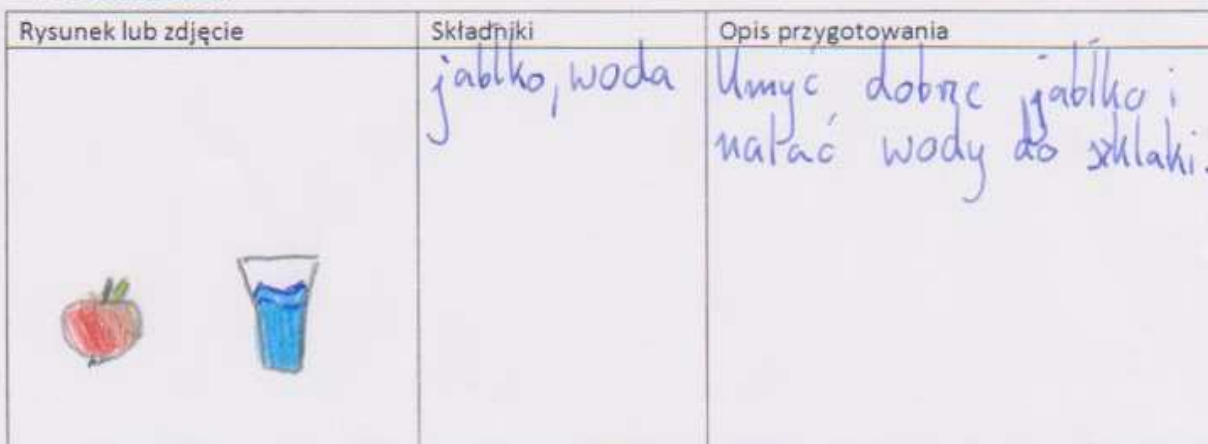 Rysunek lub zdjęcie
Składniki
Opis przygotowania
jabłko, woda
Umyć dobrze jabłko i
nalać wody do szklaki.